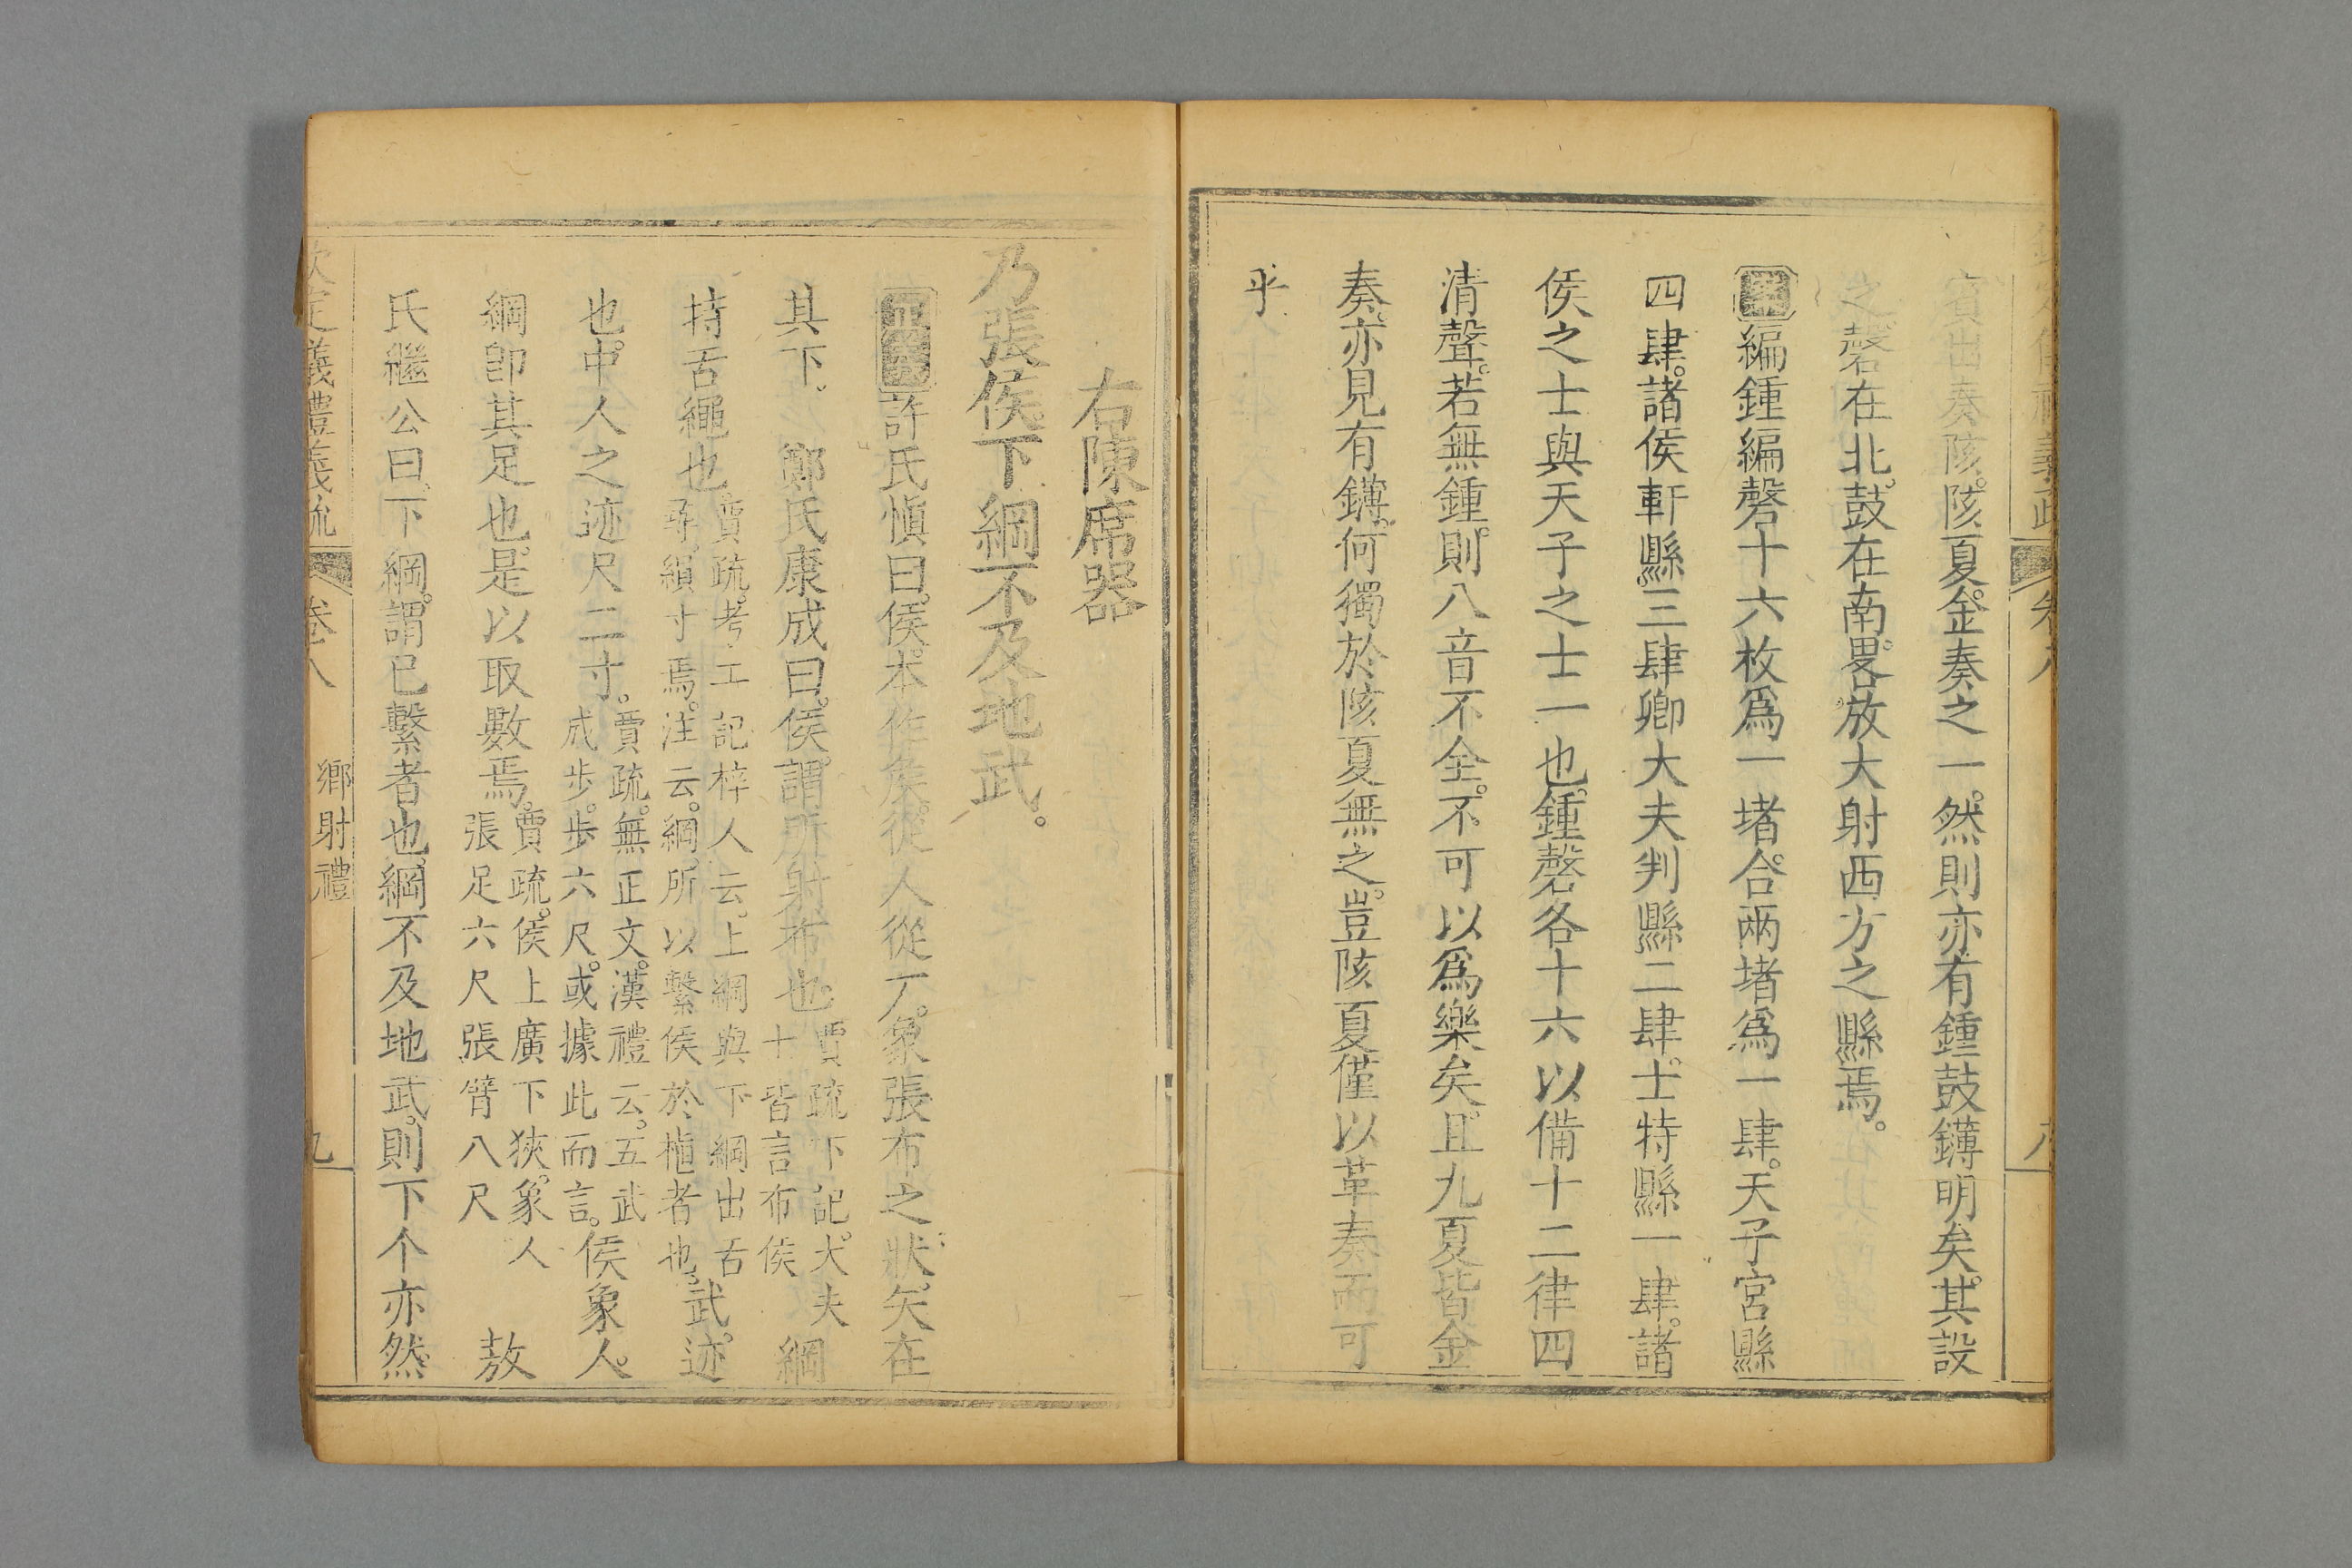 賓出奏陔。陔夏金奏之一。然則亦有鍾鼓鎛明矣。其設
之磬在北。鼓在南。畧放大射西方之縣焉。
案編鍾編磬十六枚爲一堵。合兩堵爲一肆。天子宮縣
四肆。諸侯軒縣三肆卿大夫判縣二肆。士特縣一肆。諸
侯之士與天子之士一也。鍾磬各十六以備十二律四
清聲。若無鍾。則八音不全。不可以爲樂矣。且九夏皆金
奏。亦見有鎛。何獨於陔夏無之。豈陔夏僅以革奏而可
乎
卷八
八
右陳席器
乃張侯。下綱不及地武。
正義許氏愼曰。侯。本作矦。從人從厂。象張布之狀。矢在
其下。 鄭氏康成曰。侯。謂所射布也。賈疏下記。大夫士皆言布侯 綱
持舌繩也。賈疏。考工記梓人云。上綱與下綱出舌尋。縜寸焉。注云。綱。所以繫侯於植者也。武。迹
也。中人之迹尺二寸。賈疏。無正文。漢禮云。五武成步。步六尺。或據此而言。侯象人。
綱卽其足也。是以取數焉。賈疏。侯上廣下狹。象人張足六尺張臂八尺 敖
氏繼公曰。下綱。謂已繫者也。綱不及地武。則下个亦然
欽定儀禮義疏 卷八 鄉射禮 九